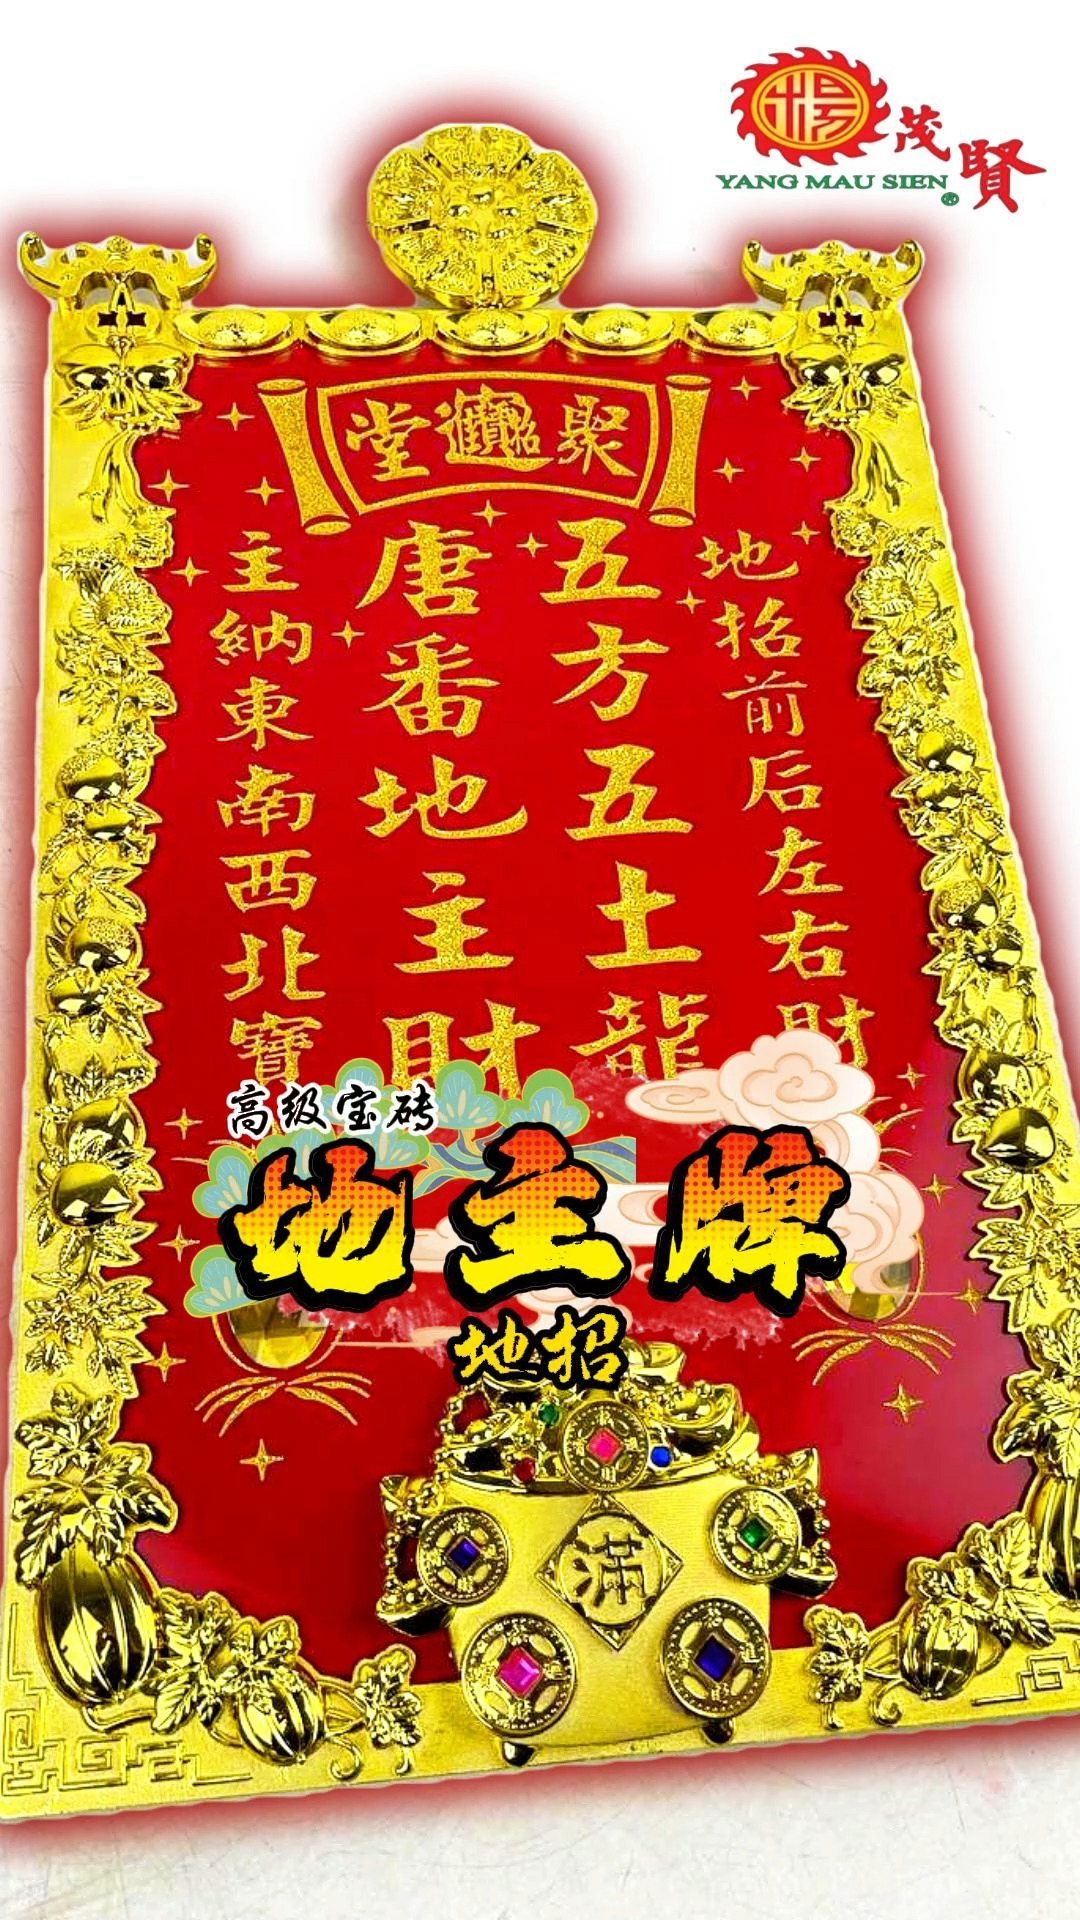 楊茂賢
YANG MAU SIEN
聚招財進寶堂
地招前后左右財
五方五土龍
唐番地主財
主納東南西北寶
高级宝砖
地主牌
地招
滿